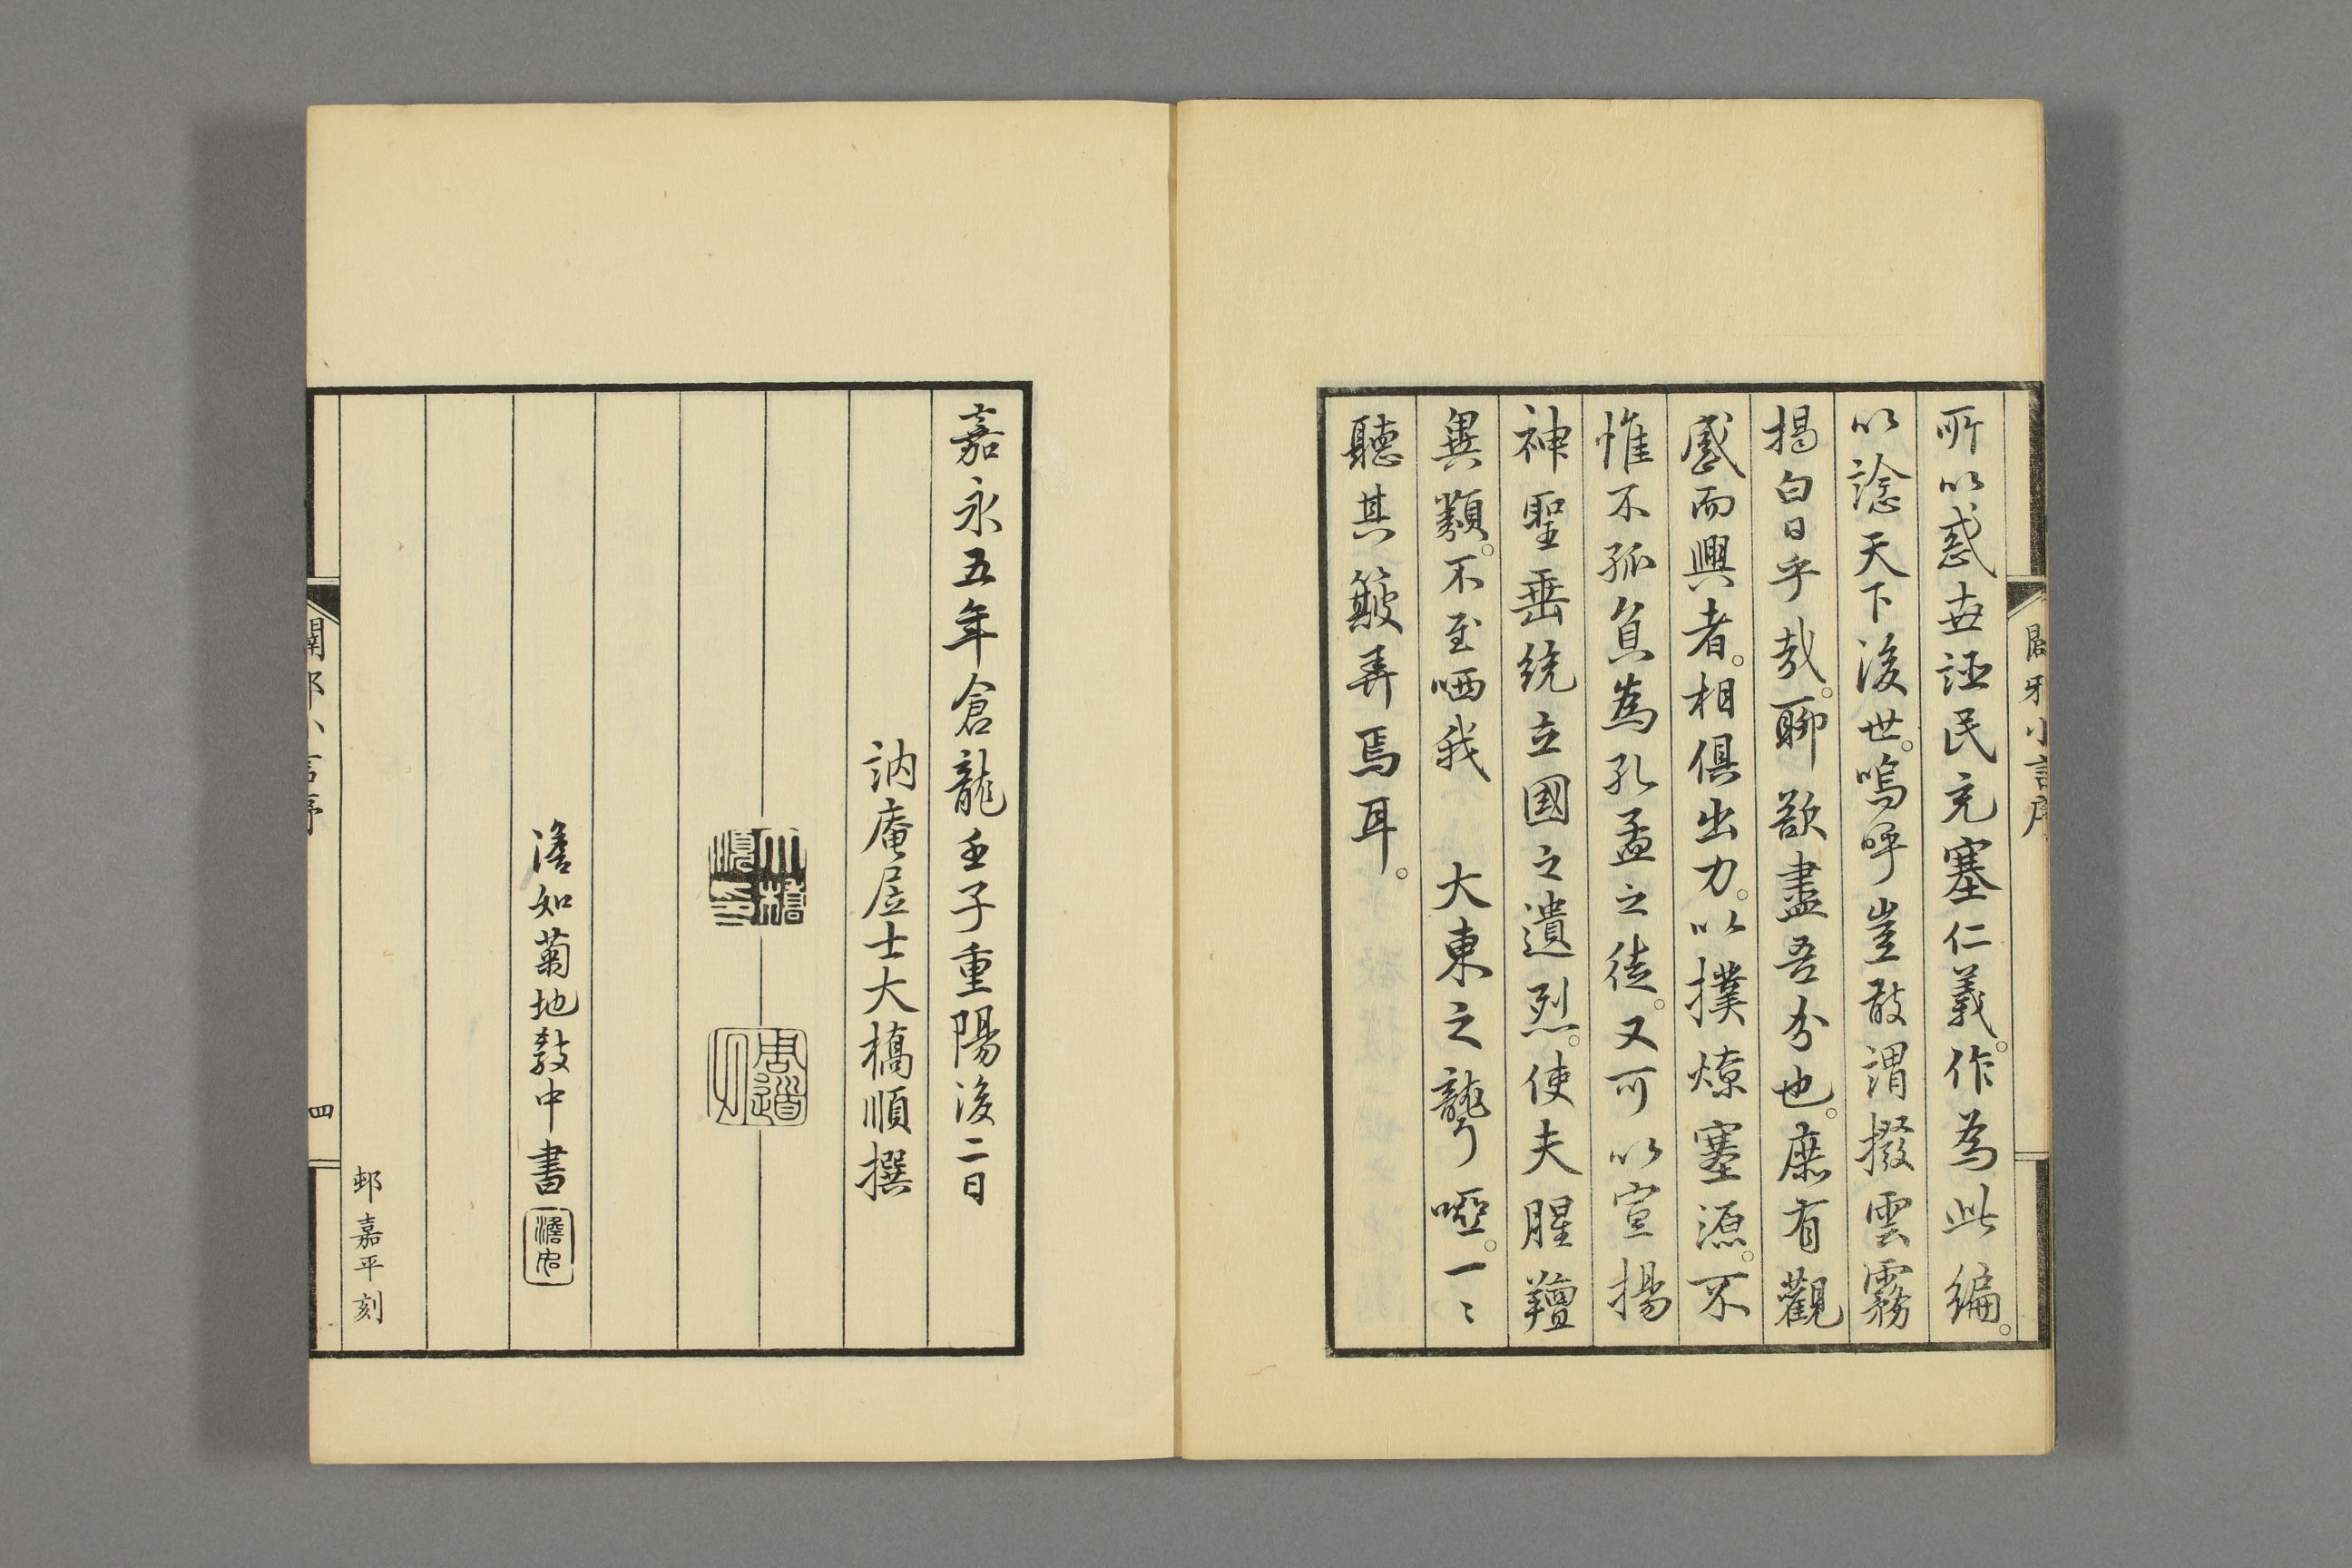 闢邪小言序
所以惑世誣民充塞仁義。作為此編。
以諗天下後世。嗚呼豈敢謂撥雲霧
揭白日乎哉。聊欲盡吾分也。庶有觀
感而興者。相俱出力。以撲燎塞源。不
惟不孤負為孔孟之徒。又可以宣揚
神聖垂統立國之遺烈。使夫腥羶
異類。不至哂我 大東之聾啞。一〻
聽其簸弄焉耳。
嘉永五年倉龍壬子重陽後二日
訥庵居士大橋順撰
大橋順印
周道
澹如菊地教中書
澹如
邨嘉平刻
闢邪小言序
四